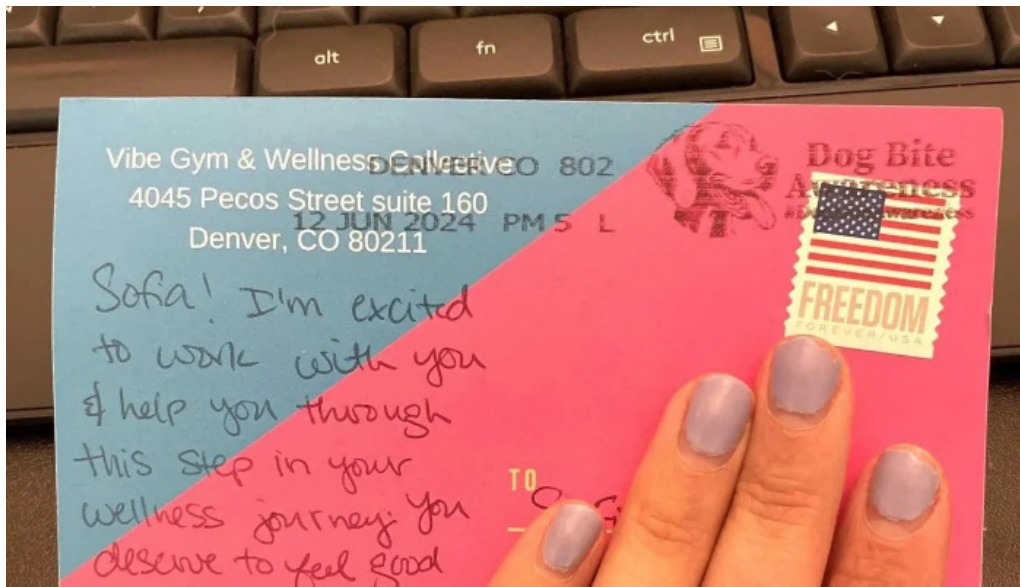 alt
fn
ctrl
Vibe Gym & Wellness Collective
4045 Pecos Street suite 160
Denver, CO 80211
DENVER CO 802
12 JUN 2024 PM 5 L
Dog Bite
Awareness
FREEDOM
FOREVER/USA
Sofia! I'm excited
to work with you
& help you through
this step in your
wellness journey. You
deserve to feel good
TO